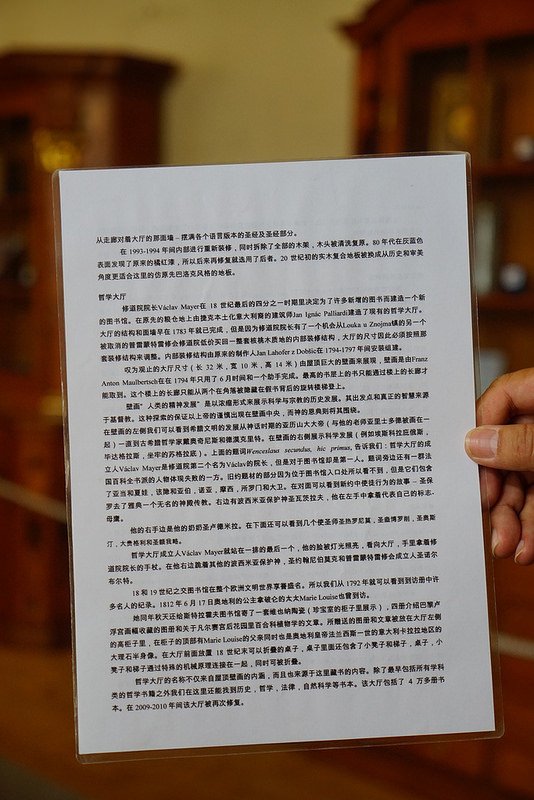 从走廊对着大厅的那面墙 – 摆满各个语言版本的圣经及圣经部分。
在 1993-1994 年间内部进行重新装修，同时拆除了全部的木架，木头被清洗复原。80 年代在灰蓝色
表面发现了原来的橘红漆，所以后来再修复就选用了后者。20 世纪初的实木复合地板被换成从历史和审美
角度更适合这里的仿原先巴洛克风格的地板。
哲学大厅
修道院院长Václav Mayer在 18 世纪最后的四分之一时期里决定为了许多新增的图书而建造一个新
的图书馆。在原先的粮仓地上由捷克本土化意大利裔的建筑师Jan Ignác Palliardi建造了现有的哲学大厅。
大厅的结构和面墙早在 1783 年就已完成，但是因为修道院院长有了一个机会从Louka u Znojma镇的另一个
被取消的普雷蒙特雷修会修道院低价买回一整套核桃木质地的内部装修结构，大厅的尺寸因此必须按照那
套装修结构来调整。内部装修结构由原来的制作人Jan Lahofer z Dobšic在 1794-1797 年间安装组建。
叹为观止的大厅尺寸（长 32 米，宽 10 米，高 14 米）由屋顶巨大的壁画来展现，壁画是由Franz
Anton Maulbertsch在在 1794 年只用了 6 月时间和一个助手完成。最高的书层上的书只能通过楼上的长廊才
能取到。这个楼上的长廊只能从两个在角落被隐藏在假书背后的旋转楼梯登上。
壁画“人类的精神发展”是以浓缩形式来展示科学与宗教的历史发展。其出发点和真正的智慧来源
于基督教。这种探索的保证以上帝的谨慎出现在壁画中央，而神的恩典则将其围绕。
在壁画的左侧我们可以看到希腊文明的发展从神话时期的亚历山大大帝（与他的老师亚里士多德被画在一
起）一直到古希腊哲学家戴奥奇尼斯和德漠克里特。在壁画的右侧展示科学发展（例如埃斯科拉庇俄斯，
毕达格拉斯，坐牢的苏格拉底）。上面的题词Wenceslaus secundus, hic primus, 告诉我们：哲学大厅的成
立人Václav Mayer是修道院第二个名为Václav的院长，但是对于图书馆却是第一人。题词旁边还有一群法
国百科全书派的人物体现失败的一方。旧约题材的部分因为位于图书馆入口处所以看不到，但是它们包含
了亚当和夏娃，该隐和亚伯，诺亚，摩西，所罗门和大卫。在对面可以看到新约中使徒行为的故事 – 圣保
罗去了雅典一个无名的神殿传教。右边有波西米亚保护神圣瓦茨拉夫，他在左手中拿着代表自己的标志-
母鹰。
他的右手边是他的奶奶圣卢德米拉。在下面还可以看到几个使圣师圣热罗尼莫，圣盎博罗削，圣奥斯
汀，大贵格利和圣额我略。
哲学大厅成立人Václav Mayer就站在一排的最后一个，他的脸被灯光照亮，看向大厅，手里拿着修
道院院长的手杖。在他右边跪着其他的波西米亚保护神，圣约翰尼伯莫克和普雷蒙特雷修会成立人圣诺尔
布尔特。
18 和 19 世纪之交图书馆在整个欧洲文明世界享誉盛名。所以我们从 1792 年就可以看到到访册中许
多名人的纪录。1812 年 6 月 17 日奥地利的公主拿破仑的太太Marie Louise也曾到访。
她同年秋天还给斯特拉霍夫图书馆寄了一套维也纳陶瓷（珍宝室的柜子里展示），四册介绍巴黎卢
浮宫画幅收藏的图册和关于凡尔赛宫后花园里百合科植物学的文章。所赠送的图册和文章被放在大厅左侧
的高柜子里，在柜子的顶部有Marie Louise的父亲同时也是奥地利皇帝法兰西斯一世的意大利卡拉拉地区的
大理石半身像。在大厅前面放置 18 世纪末可以折叠的桌子，桌子里面还包含了小凳子和梯子，桌子，小
凳子和梯子通过特殊的机械原理连接在一起，同时可被折叠。
哲学大厅的名称不仅来自屋顶壁画的内涵，而且也来源于这里藏书的内容。除了最早包括所有学科
类的哲学书籍之外我们在这里还能找到历史，哲学，法律，自然科学等书本。该大厅包括了 4 万多册书
本。在 2009-2010 年间该大厅被再次修复。